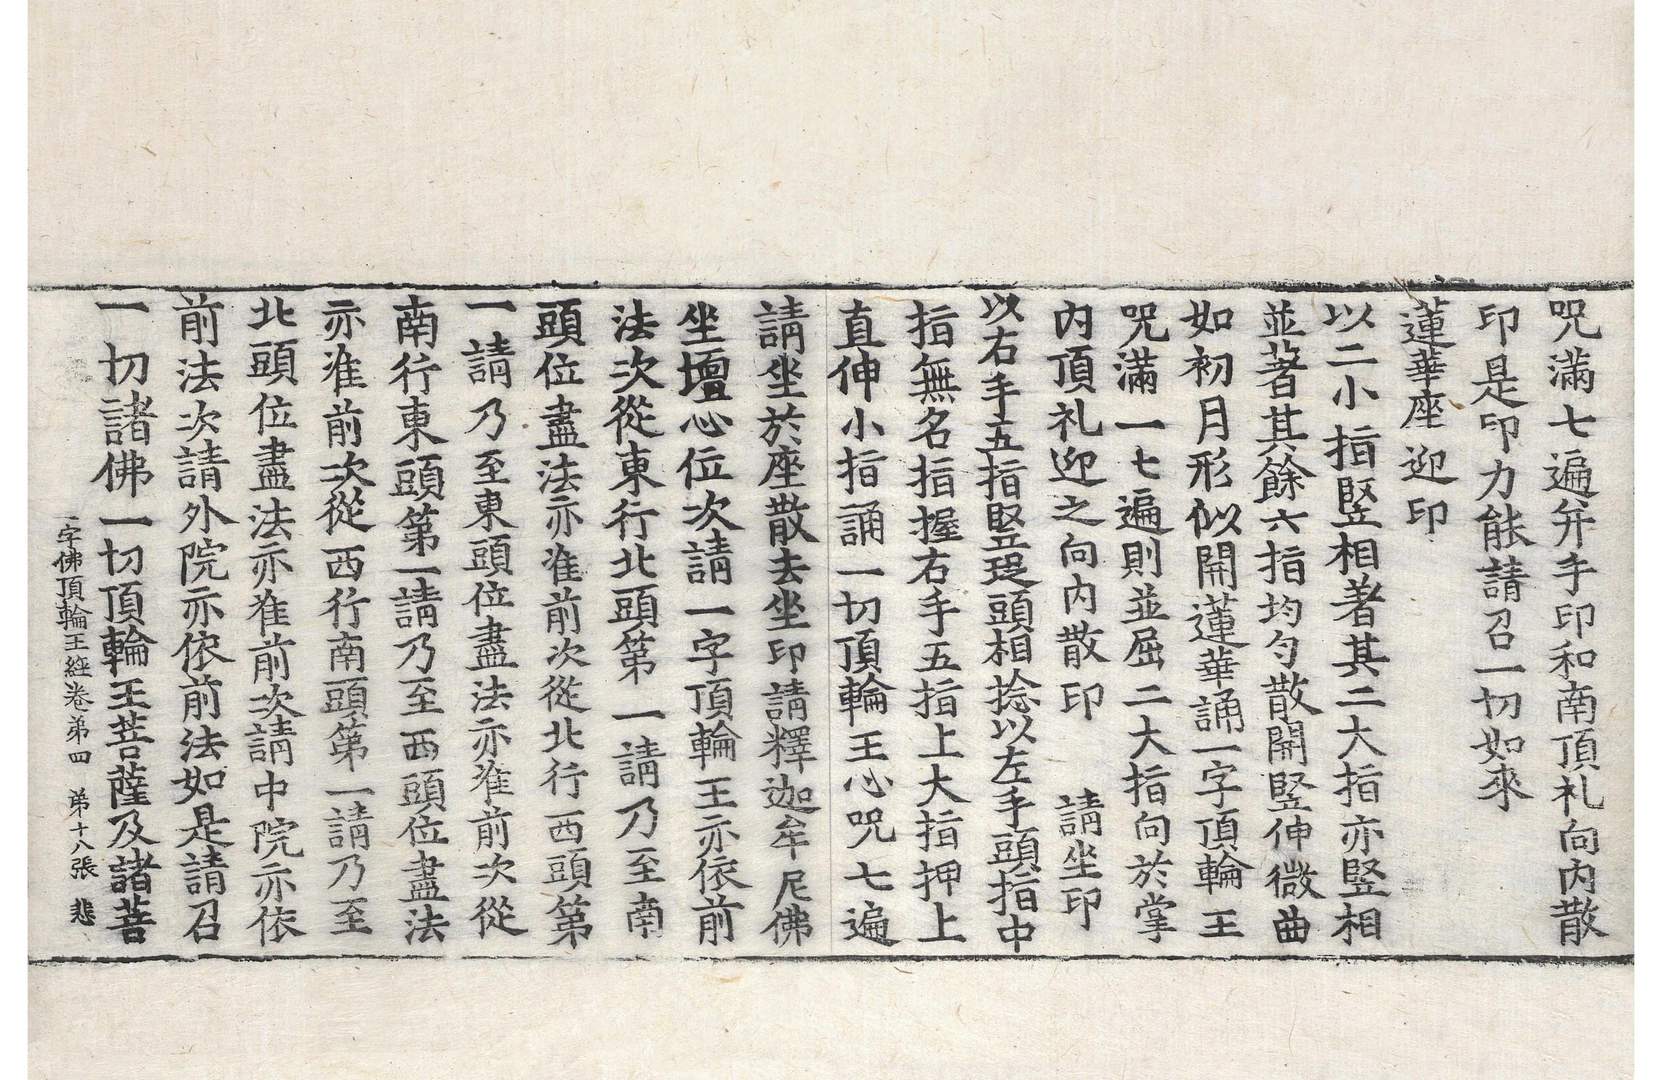 呪滿七遍弁手印和南頂礼向內散
印是印力能請召一切如來
蓮華座迎印
以二小指竪相著其二大指亦竪相
並著其餘六指均匀散開竪伸微曲
如初月形似開蓮華誦一字頂輪王
呪滿一七遍則並屈二大指向於掌
內頂礼迎之向內散印　請坐印
以右手五指竪頭相捻以左手頭指中
指無名指握右手五指上大指押上
直伸小指誦一切頂輪王心呪七遍
請坐於座散去坐印請釋迦牟尼佛
坐壇心位次請一字頂輪王亦依前
法次從東行北頭第一請乃至南
頭位盡法亦准前次從北行西頭第
一請乃至東頭位盡法亦准前次從
南行東頭第一請乃至西頭位盡法
亦准前次從西行南頭第一請乃至
北頭位盡法亦准前次請中院亦依
前法次請外院亦依前法如是請召
一切諸佛一切頂輪王菩薩及諸菩
一字佛頂輪王經卷第四　第十八張　悲